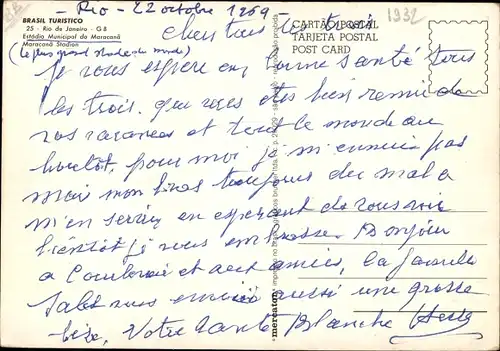 Rio - 22 octobre 1969
1932
BRASIL TURISTICO
25 - Rio de Janeiro - GB
Estádio Municipal do Maracanã
Maracanã Stadion
(le plus grand stade du monde)
CARTÃO POSTAL
TARJETA POSTAL
POST CARD
chers tous les trois
Je vous espere en bonne santé tous
les trois. que vous etes bien remis de
vos vacances et tout le monde au
boulot, pour moi je m'ennuie pas
mais mon bras toujours du mal a
m'en servir en esperant de vous voir
bientôt je vous embrasse. Bonjour
a et aux amies, la famille
Sales vous envoie aussi une grosse
bise, Votre Tante Blanche
mercator